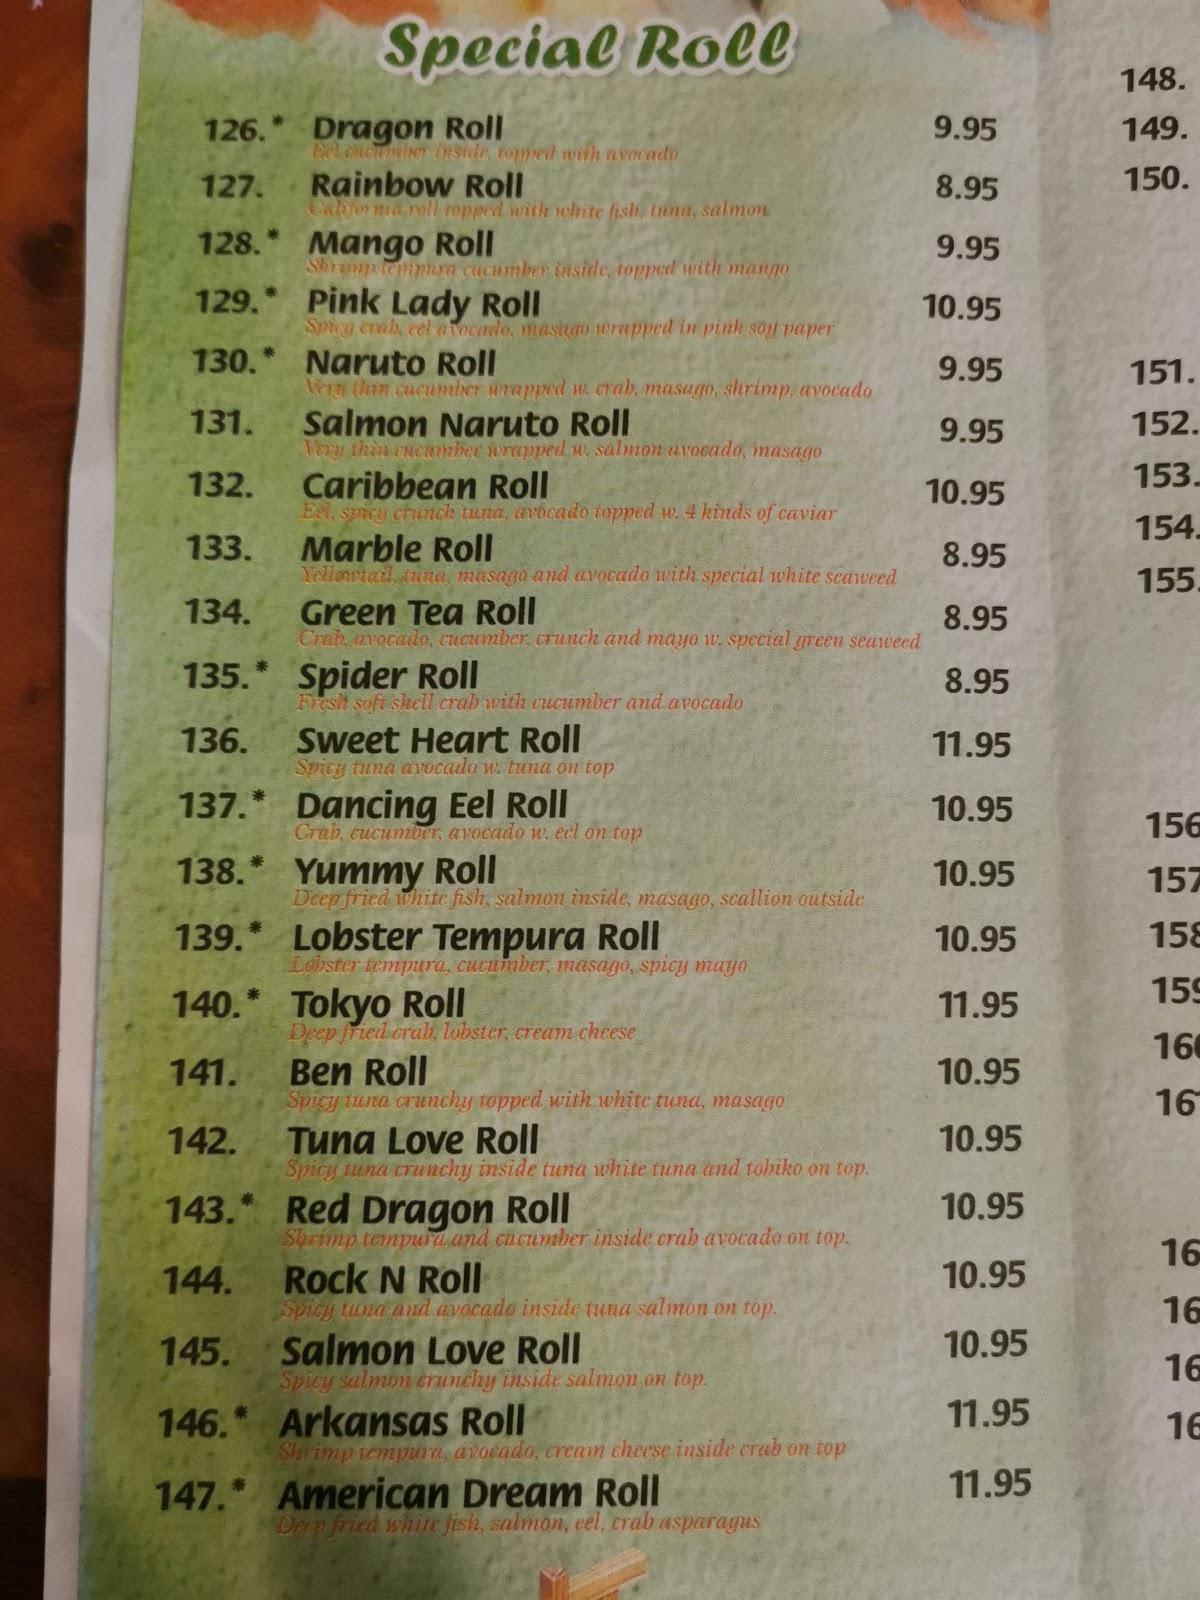 Special Roll
126.* Dragon Roll 9.95
Eel cucumber inside, topped with avocado
127. Rainbow Roll 8.95
California roll topped with white fish, tuna, salmon
128.* Mango Roll 9.95
Shrimp tempura cucumber inside, topped with mango
129.* Pink Lady Roll 10.95
Spicy crab, eel avocado, masago wrapped in pink soy paper
130.* Naruto Roll 9.95
Very thin cucumber wrapped w. crab, masago, shrimp, avocado
131. Salmon Naruto Roll 9.95
Very thin cucumber wrapped w. salmon avocado, masago
132. Caribbean Roll 10.95
Eel, spicy crunch tuna, avocado topped w. 4 kinds of caviar
133. Marble Roll 8.95
Yellowtail, tuna, masago and avocado with special white seaweed
134. Green Tea Roll 8.95
Crab, avocado, cucumber, crunch and mayo w. special green seaweed
135.* Spider Roll 8.95
Fresh soft shell crab with cucumber and avocado
136. Sweet Heart Roll 11.95
Spicy tuna avocado w. tuna on top
137.* Dancing Eel Roll 10.95
Crab, cucumber, avocado w. eel on top
138.* Yummy Roll 10.95
Deep fried white fish, salmon inside, masago, scallion outside
139.* Lobster Tempura Roll 10.95
Lobster tempura, cucumber, masago, spicy mayo
140.* Tokyo Roll 11.95
Deep fried crab, lobster, cream cheese
141. Ben Roll 10.95
Spicy tuna crunchy topped with white tuna, masago
142. Tuna Love Roll 10.95
Spicy tuna crunchy inside tuna white tuna and tobiko on top.
143.* Red Dragon Roll 10.95
Shrimp tempura and cucumber inside crab avocado on top.
144. Rock N Roll 10.95
Spicy tuna and avocado inside tuna salmon on top.
145. Salmon Love Roll 10.95
Spicy salmon crunchy inside salmon on top.
146.* Arkansas Roll 11.95
Shrimp tempura, avocado, cream cheese inside crab on top
147.* American Dream Roll 11.95
Deep fried white fish, salmon, eel, crab asparagus
148.
149.
150.
151.
152.
153.
154.
155.
156
157
158